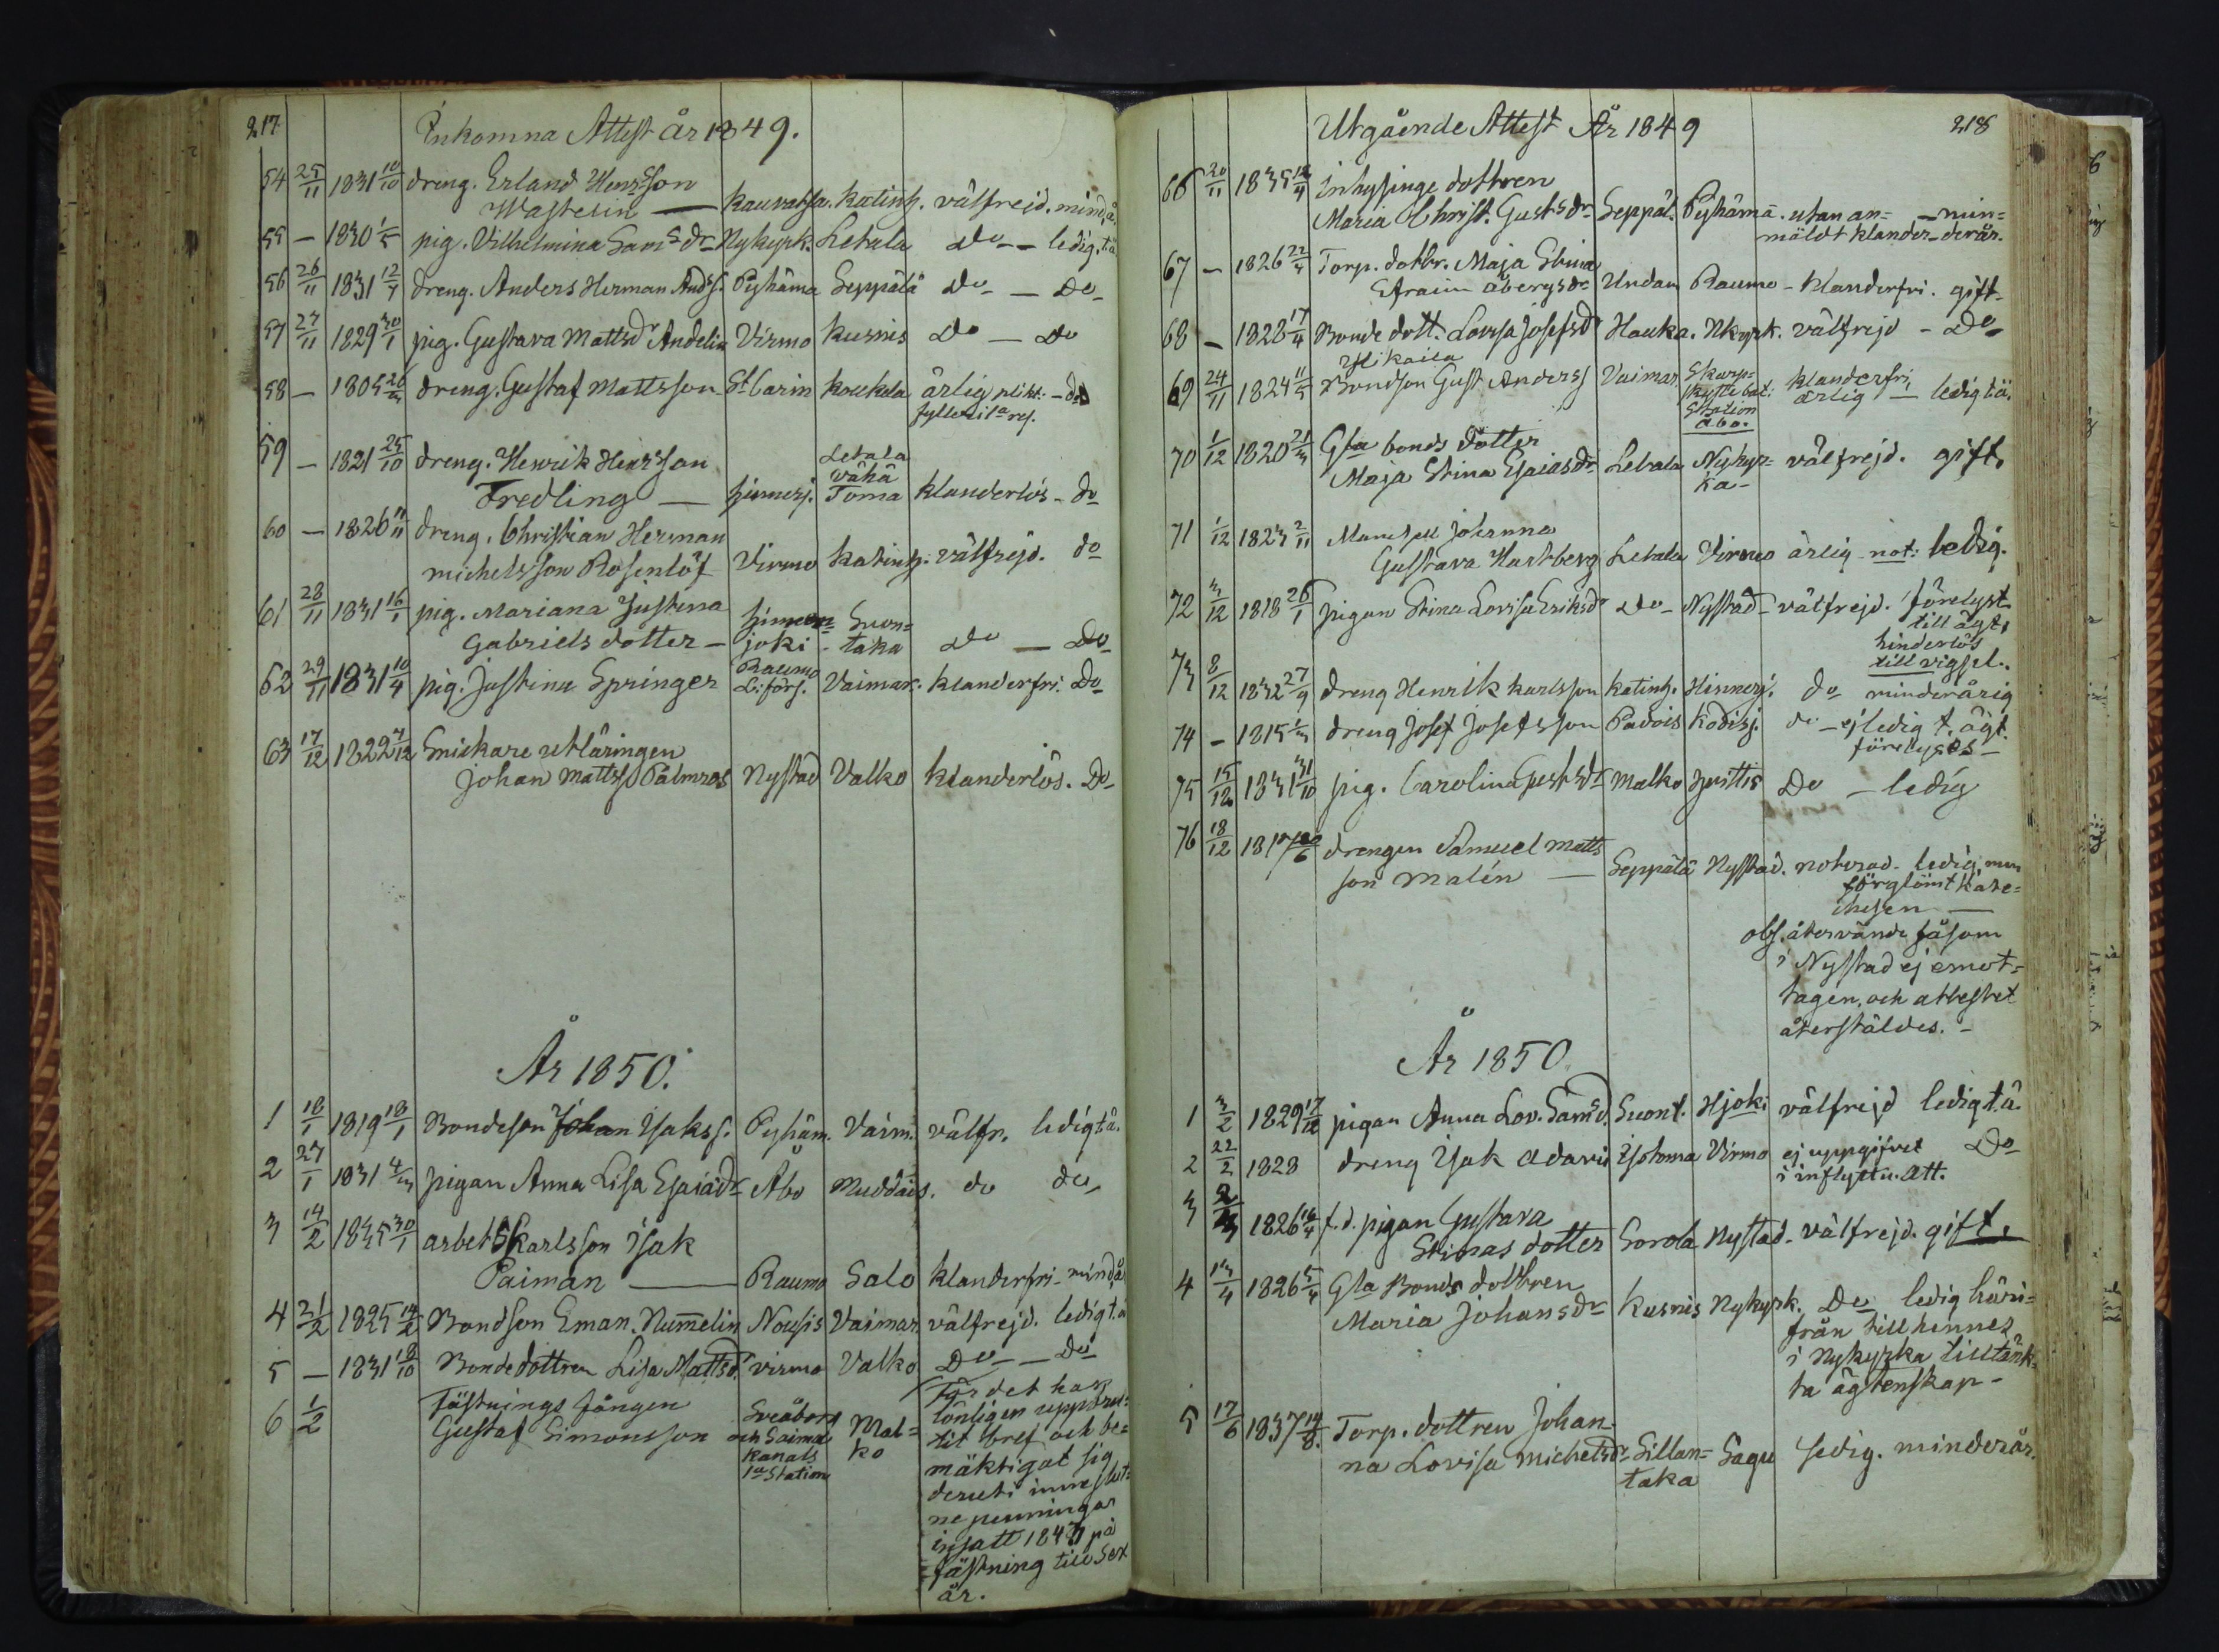 217
Inkomna Attest år 1849.
54 25/11 1831 10/10 dreng. Erland Henrsson
Wastelin — Kauvatsa. Katinh. välfrejd. mindå.
55 — 1830 1/5 pig. Vilhelmina Sams dr Nykyrk. Letala do — ledig. t.ä
56 26/11 1831 12/7 dreng. Anders Herman Andss. Pyhäma Seppälä do — do
57 27/11 1829 30/1 pig. Gustava Mattsdr Andelin Virmo Kusnis do — do
58 — 1805 26/3 dreng. Gustaf Mattsson St Carin Koukala ärlig plikt. — do
fylleri 1a res.
59 — 1821 25/10 dreng. Henrik Henrsson Letala
Fredling — Hinnerj. Vähä Toma klanderlös — do
60 — 1826 11/11 dreng. Christian Herman
Michelsson Rosenlöf Virmo Katinh. välfrejd. do
61 28/11 1831 16/1 pig. Mariana Justina Hinner= Suon=
Gabriels dotter — joki. taka do — do
62 29/11 1831 10/4 pig. Justina Springer Raumo Vaimar. klanderfri. do
63 17/12 1822 7/12 Snickare utläringen
Johan Mattss Palmros Nystad Valko klanderlös. do
År 1850.
1 18/1 1819 18/1 Bondeson Johan Isakss. Pyhäm. Vaim. välfr. ledig t.ä.
2 27/1 1831 4/3 pigan Anna Lisa Esaiædr Åbo Muddais. do do
3 14/2 1835 30/1 arbets Karlsson Isak
Paiman — Raumo Salo klanderfri — mindå
4 21/2 1825 14/2 Bondson Eman. Numelin Nousis Vaimar. välfrejd. ledig t.ä
5 — 1831 18/10 Bondedottren Lisa Mattsdr Virmo Valko do — do
6 1/2 Fästnings fången Sveaborg för det han
Gustaf Simonsson och Saima Mal= lönligen uppbru=
kanals ko tit bref och be=
1a Station mäktigat sig
deruti inneslut=
ne penningar
insatt 1847 på
fästning till Sex
år.
Utgående Attest År 1849
218
66 20/11 1835 12/4 Inhysinge dottren
Maria Christ. Gustsdr Seppäl. Pyhämä. utan an= — min=
mäldt klander — derår.
67 — 1826 22/4 Torp. dottr. Maja Stina
Efraim Åbergsdr Undan Raumo — klanderfri. gift
68 — 1828 17/4 Bonde dott. Lovisa Josefsdr Hauka. Nkyrk. välfrejd — do
69 24/11 1824 11/5 Bondson Gust. Anderss Vaimar Skarp= klanderfri,
skytte bat. ärlig — ledig t.ä.
Station
Åbo.
70 1/12 1820 21/3 Gla bonds dotter
Maja Stina Esaiasdr Letala Nykyr= välfrejd. gift.
ka —
71 1/12 1823 2/11 Mamsell Johanna
Gustava Hartberg Letala Virmo ärlig not: ledig.
72 3/12 1818 26/1 pigan Stina Lovisa Eriksdr do — Nystad — välfrejd. förelyst.
till ägt.
hinderlös
till vigsel.
73 8/12 1832 27/9 dreng Henrik Karlsson Katinh. Hinnerj. do minderårig
74 — 1815 1/3 dreng Josef Josefsson Padois Kodisj. do — ej ledig t. ägt.
förelyses —
75 15/12 1831 31/10 pig. Carolina Gustsdr Malko Hvittis do — ledig
76 18/12 drengen Samuel Matts
son Malén — Seppälä Nystad. noterad. ledig, men
förglömt kate=
chesen —
obs. återvände såsom
i Nystad ej emot=
tagen, och attestet
återstäldes. —
År 1850
1 3/2 1829 17/12 pigan Anna Lov. Samsd. Suont. Hjoki välfrejd ledig t.ä.
2 22/2 1828 dreng Isak Adami Isotoma Virmo ej uppgifvet do
i inflyttn. att.
3 1826 16/4 f.d. pigan Gustava
Stinas dotter Sorola Nystad — välfrejd. gift.
4 13/4 1826 5/4 Gla Bonds dottren
Maria Johansdr Kusnis Nykyrk. do ledig häri=
från till hennes
i Nykyrka tilltänk=
ta ägtenskap —
5 17/6 1837 14/8 Torp. dottren Johan=
na Lovisa Michelsdr Sillan= Sagu ledig. minderår.
taka